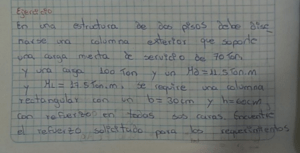 Ejercicio
En una estructura de dos pisos debe dise
narse una columna exterior que soporte
una carga muerta de servicio de 70 Ton,
y una carga 100 Ton y un Md = 11.5 Ton.m
y ML = 17.5 Ton.m, se require una columna
rectangular con un b = 30cm y h=60cm,
con refuerzo en todos sus caras. Encuentre
el refuerzo solicitado para los requerimientos